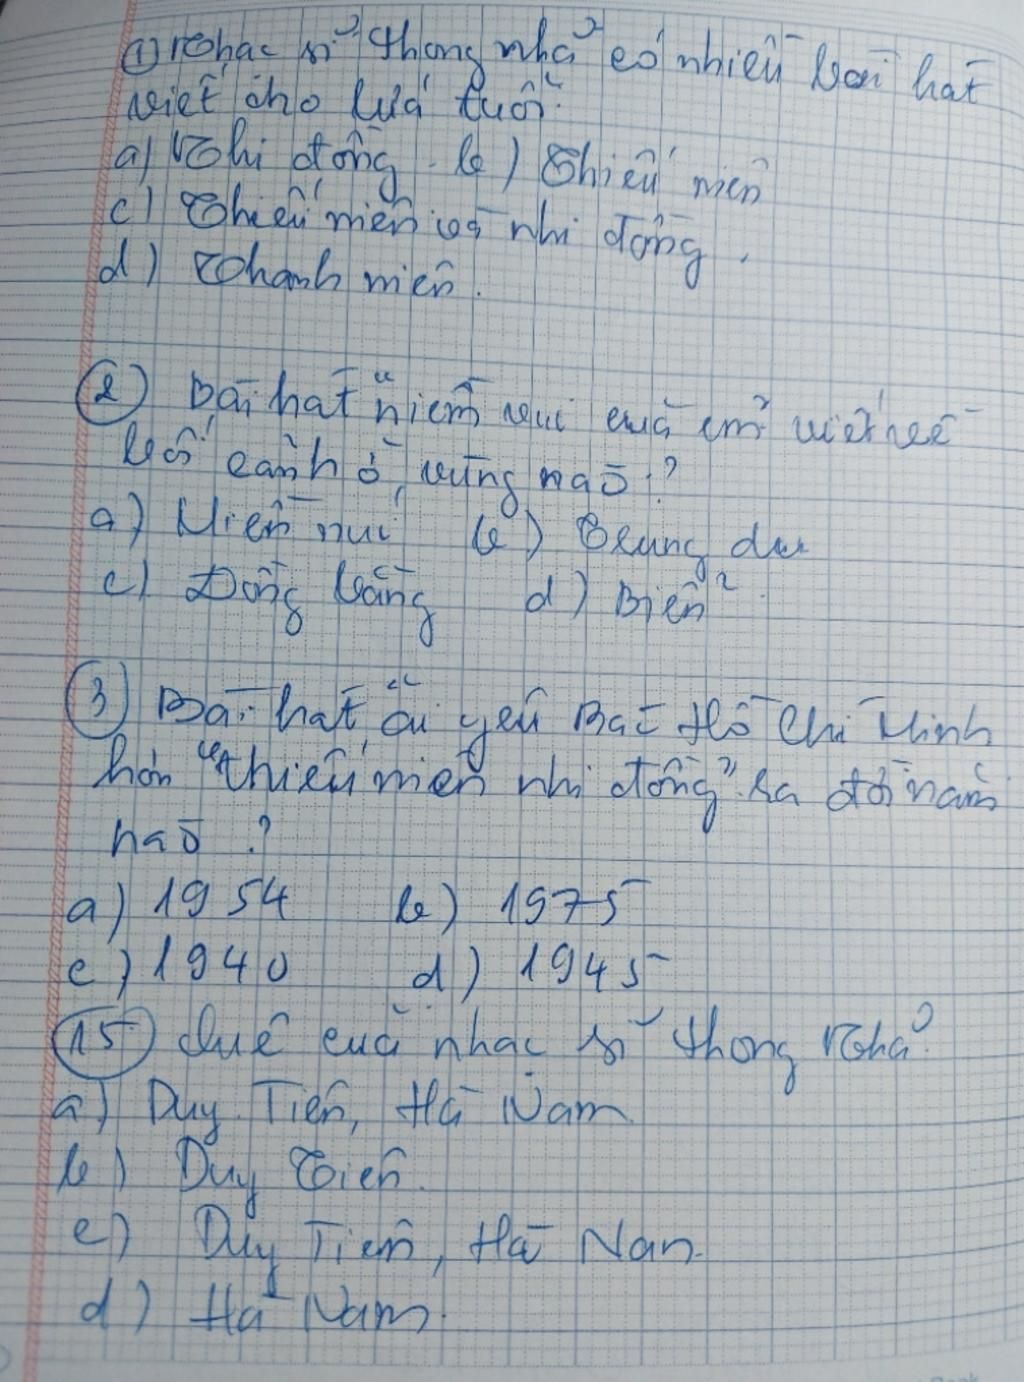 ① Nhạc sĩ Phong nhã có nhiều bài hát
viết cho lứa tuổi:
a) Nhi đồng. b) Thiếu niên
c) Thiếu niên và nhi đồng.
d) Thanh niên.
② Bài hát "niềm vui của em" viết về
bối cảnh ở vùng nào?
a) Miền núi b) Trung du
c) Đồng bằng d) Biển
③ Bài hát "Ai yêu Bác Hồ Chí Minh
hơn thiếu niên nhi đồng" ra đời năm
nào?
a) 1954 b) 1975
c) 1940 d) 1945
⑮ Quê của nhạc sĩ Phong Nhã?
a) Duy Tiên, Hà Nam
b) Duy Tiên.
c) Duy Tiên, Hà Nan.
d) Hà Nam.